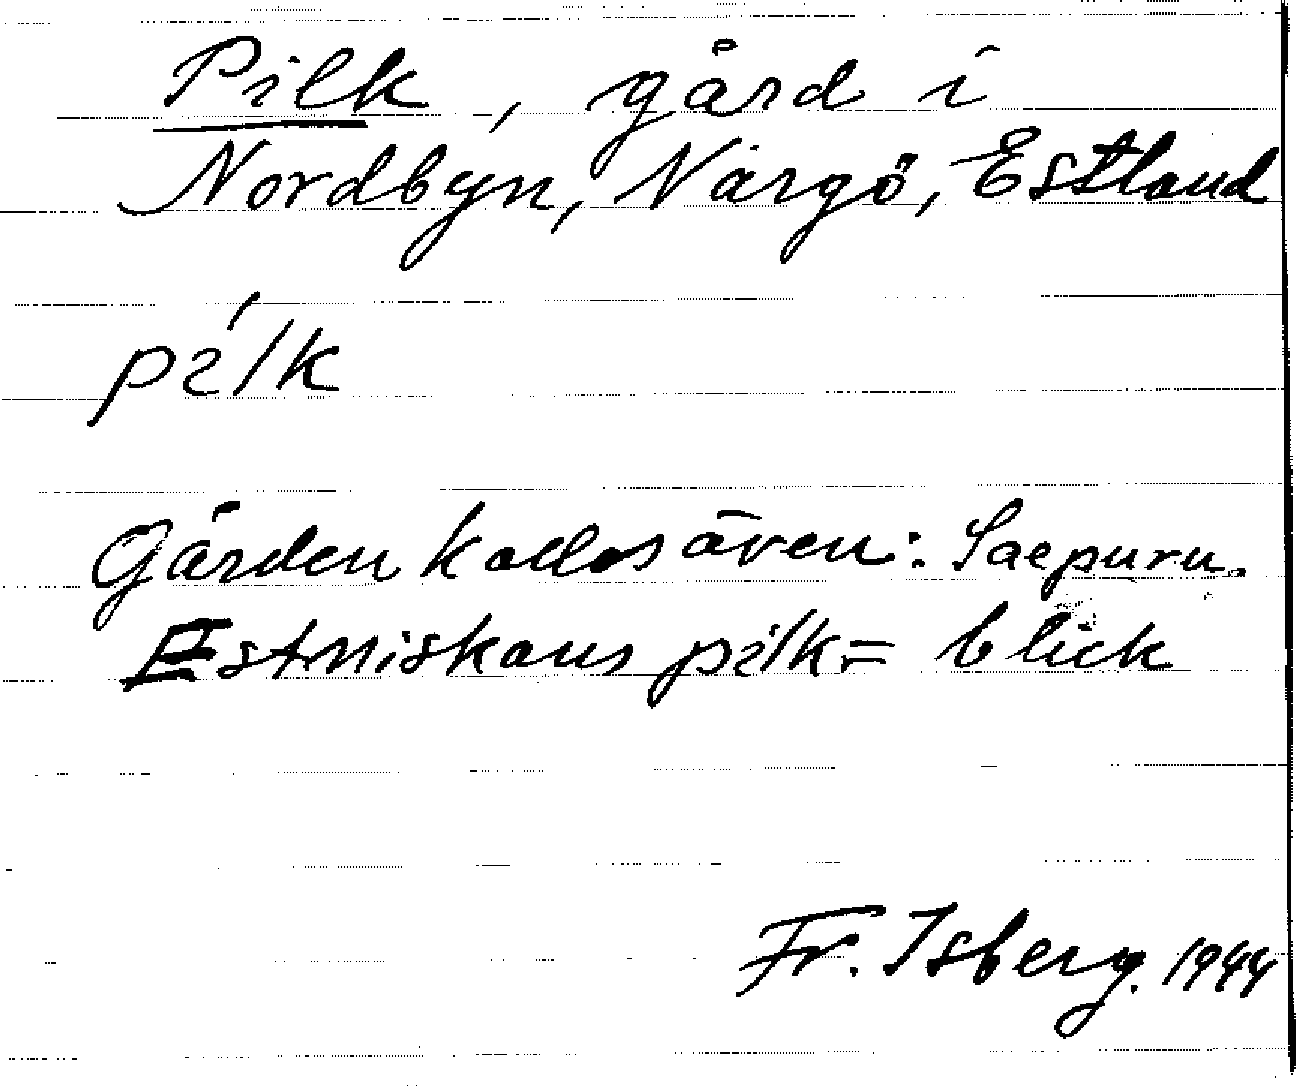 Pilk, gård i
Nordbyn, Nargö, Estland
pilk
Gården kallas även: Saepuru.
Estniskans pilk = blick
Fr. Isberg. 1944